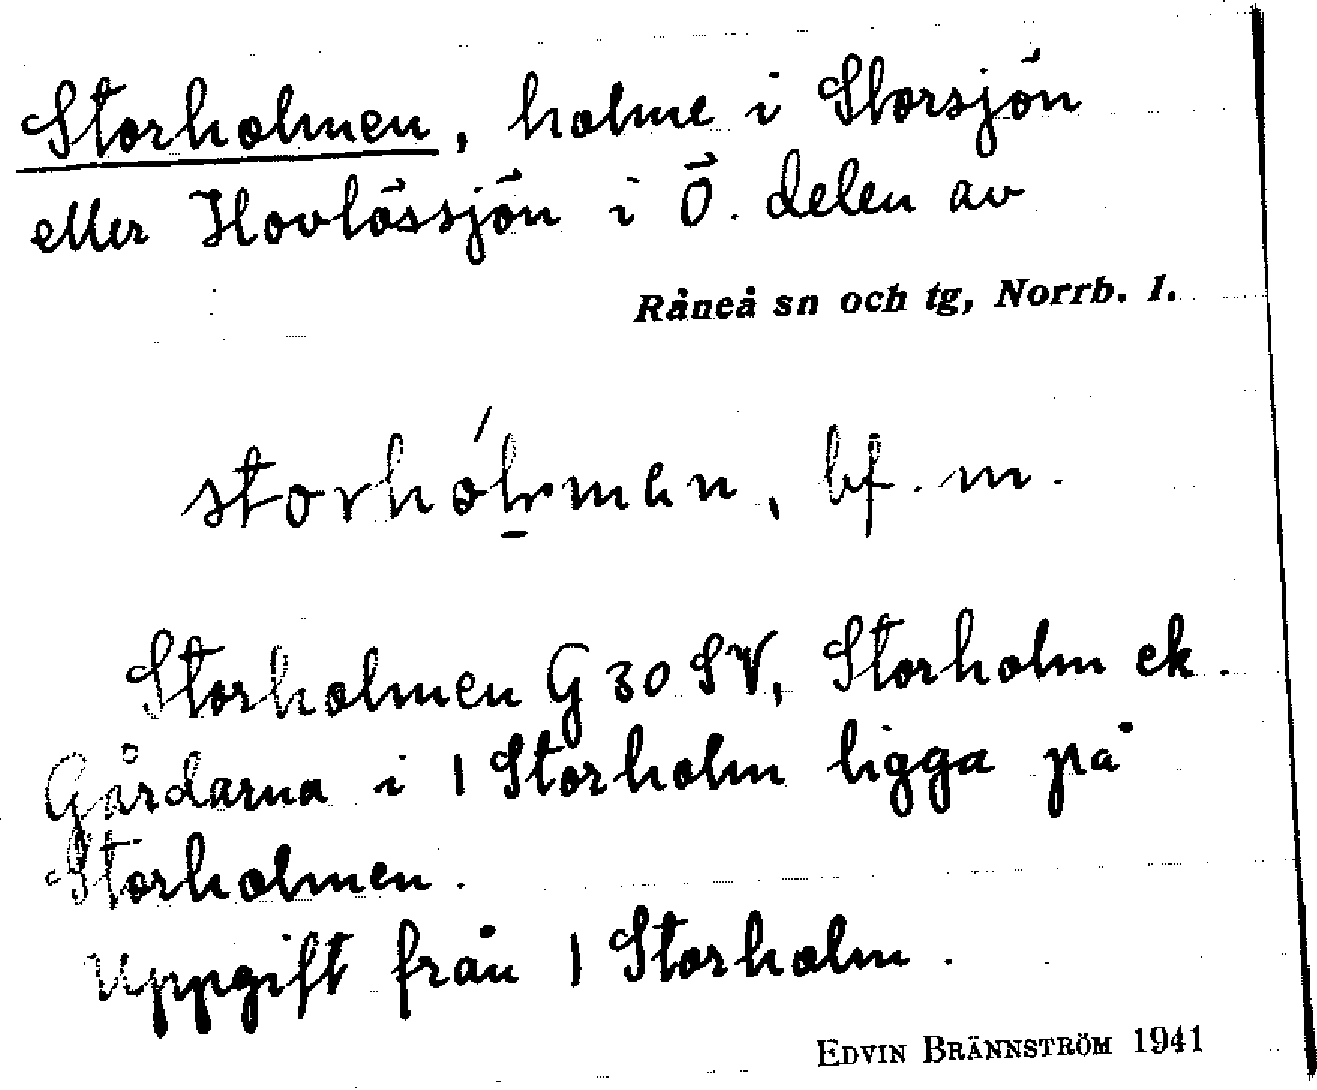 Storholmen, holme i Storsjön
eller Hovlössjön i Ö. delen av
Råneå sn och tg, Norrb. l.
bf. m.
Storholmen G 30 SV, Storholm ek.
Gårdarna i 1 Storholm ligga på
Storholmen.
Uppgift från 1 Storholm.
EDVIN BRÄNNSTRÖM 1941